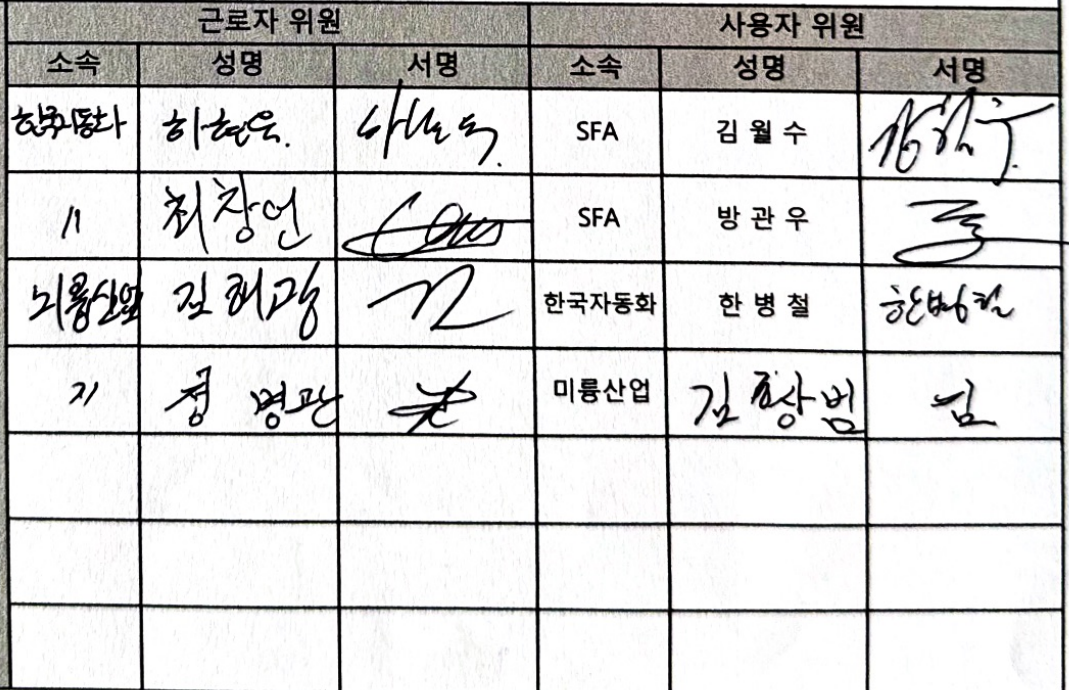 근로자 위원 사용자 위원
소속 성명 서명 소속 성명 서명
한국자동화 하현욱 SFA 김월수
〃 최창연 SFA 방관우
미륭산업 김해광 한국자동화 한병철 한병철
〃 정병관 미륭산업 김황범